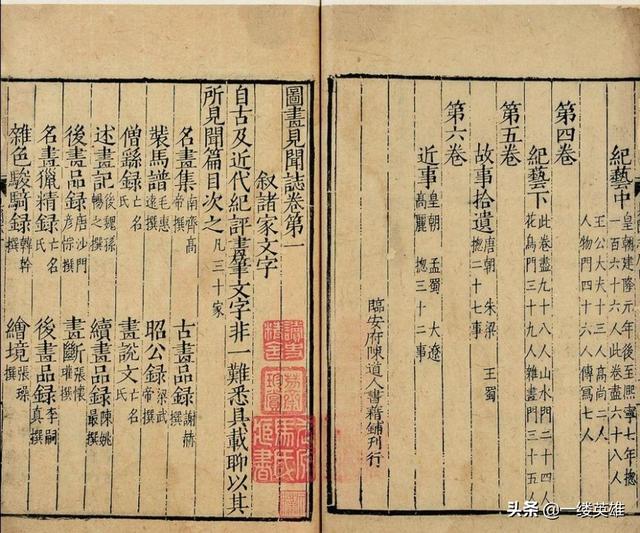 紀藝中
皇朝建隆元年後至熙寧七年揔
一百六十六人此卷盡六十八人
王公大夫十三人高尚二人
人物門四十六人傳寫七人
第四卷
紀藝下
此卷盡九十八人山水門二十四人
花鳥門三十九人雜畫門三十五人
第五卷
故事拾遺 唐朝 朱梁 王蜀 揔二十七事
第六卷
近事 皇朝 孟蜀 大遼 高麗 揔三十二事
臨安府陳道人書籍鋪刊行
圖畫見聞誌卷第一
叙諸家文字
自古及近代紀評畫筆文字非一難悉具載聊以其
所見聞篇目次之 凡三十家
名畫集 南齊高帝撰 古畫品録 謝赫撰
裝馬譜 毛惠遠撰 昭公録 梁武帝撰
僧繇録 亡名氏 畫説文 亡名氏
述畫記 後魏孫暢之撰 續畫品録 陳姚最撰
後畫品録 唐沙門彦悰撰 畫斷 張懷瓘撰
名畫獵精録 亡名氏 後畫品録 李嗣真撰
雜色駿騎録 韓幹撰 繪境 張璪撰
头条 @一缕英雄